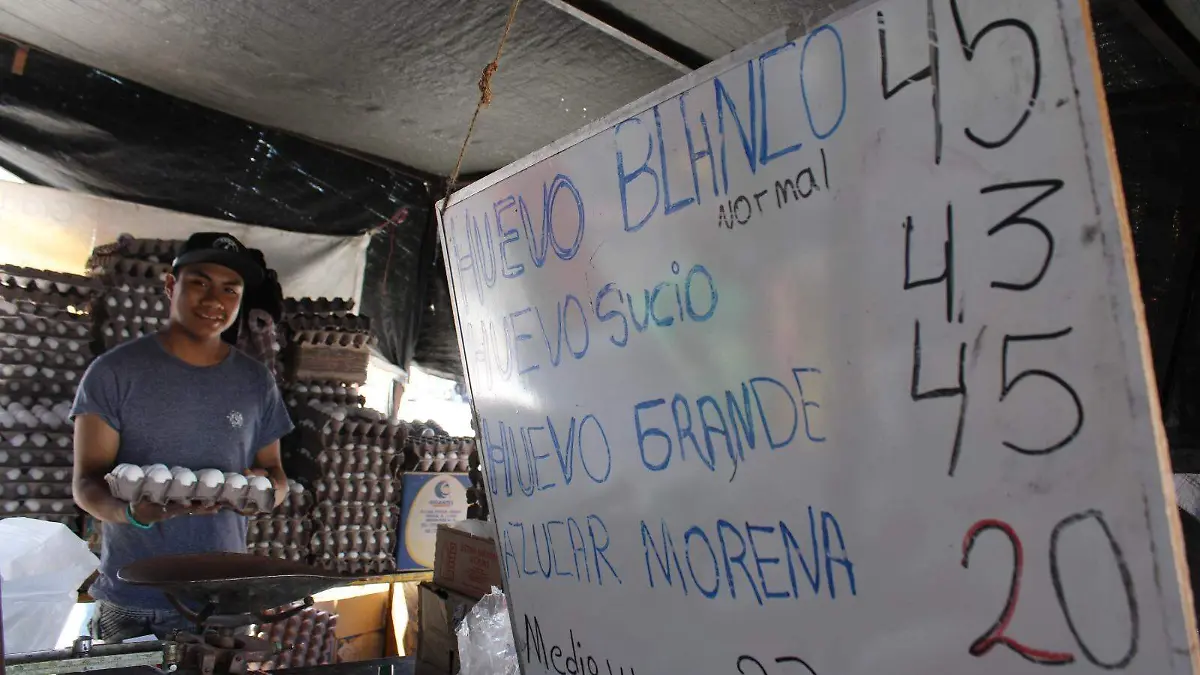 HUEVO BLANCO 45
normal
HUEVO SUCIO 43
HUEVO GRANDE 45
AZUCAR MORENA 20
Medio